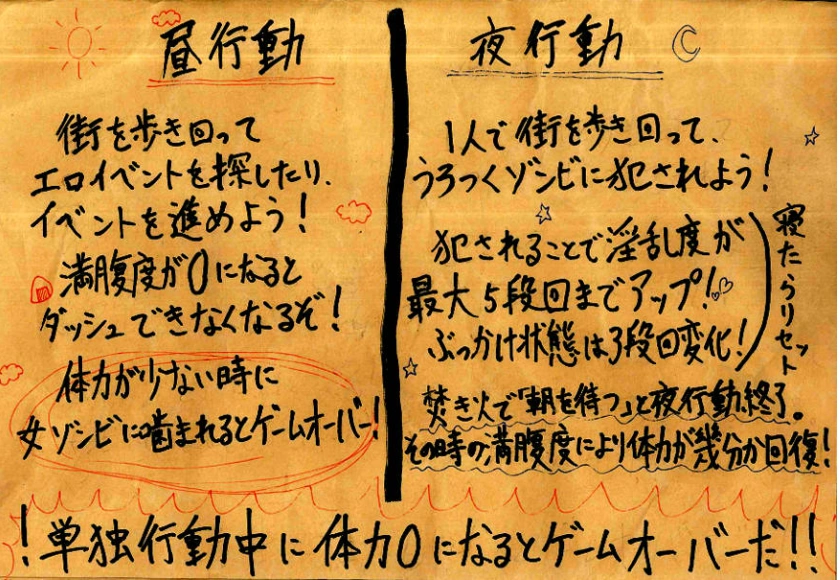 昼行動
街を歩き回って
エロイベントを探したり、
イベントを進めよう!
満腹度が0になると
ダッシュできなくなるぞ!
体力が少ない時に
女ゾンビに噛まれるとゲームオーバー!
夜行動
1人で街を歩き回って、
うろつくゾンビに犯されよう!
犯されることで淫乱度が
最大5段回までアップ!
ぶっかけ状態は3段回変化!
寝たらリセット
焚き火で「朝を待つ」と夜行動終了。
その時の満腹度により体力が幾分か回復!
!単独行動中に体力0になるとゲームオーバーだ!!